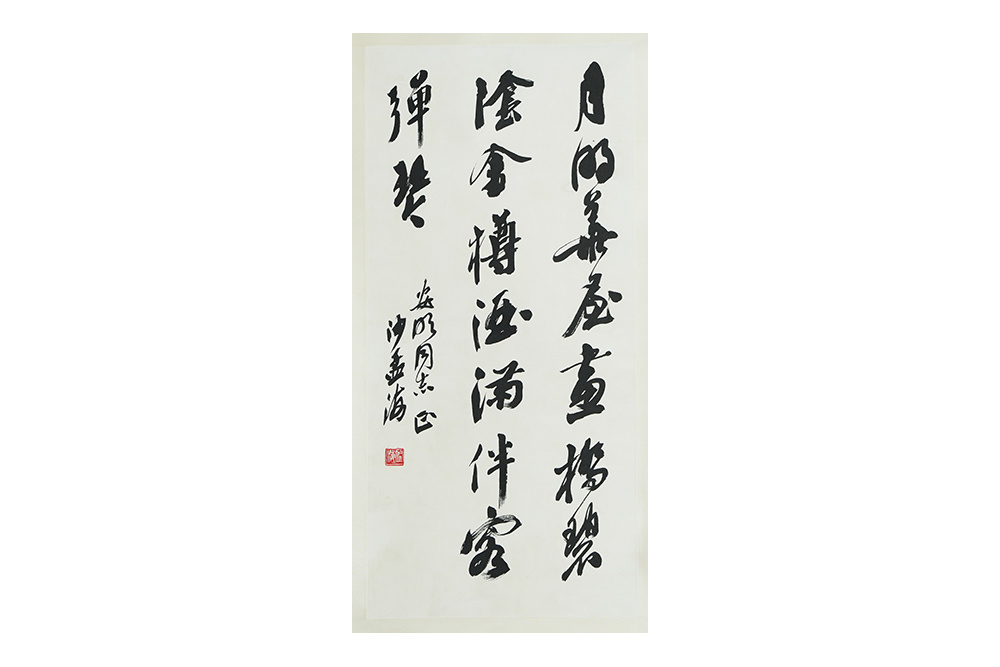 月明華屋畫橋碧
陰金樽酒滿伴客
彈琴
同志正
沙孟海